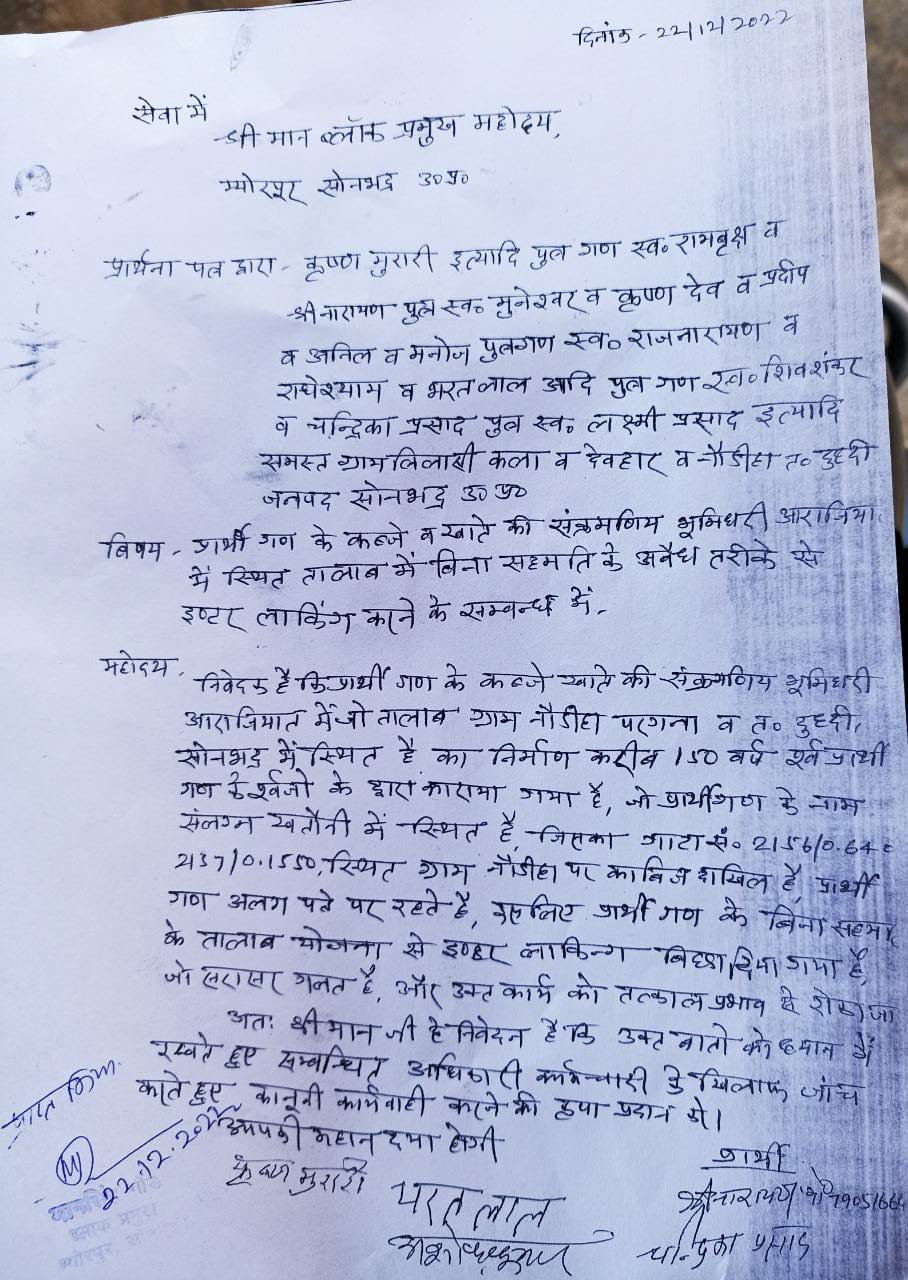 दिनांक - 22/12/2022
सेवा में
श्री मान ब्लॉक प्रमुख महोदय,
म्योरपुर सोनभद्र उ०प्र०
प्रार्थना पत्र द्वारा - कृष्ण मुरारी इत्यादि पुत्र गण स्व० रामबृक्ष व
श्री नारायण पुत्र स्व० मुनेश्वर व कृष्ण देव व प्रदीप
व अनिल व मनोज पुत्रगण स्व० राजनारायण व
राधेश्याम व भरत लाल आदि पुत्र गण स्व० शिवशंकर
व चन्द्रिका प्रसाद पुत्र स्व० लक्ष्मी प्रसाद इत्यादि
समस्त ग्राम कला व देवहार व नौडीहा त० दुद्दी
जनपद सोनभद्र उ० प्र०
विषय - प्रार्थी गण के कब्जे व खाते की संक्रमणिय भूमिधरी
में स्थित तालाब में बिना सहमति के अवैध तरीके से
इण्टर लाकिंग करने के सम्बन्ध में -
महोदय,
निवेदक है कि प्रार्थी गण के कब्जे खाते की संक्रमणिय भूमिधरी
आराजियात में जो तालाब ग्राम नौडीहा परगना व त० दुद्दी,
सोनभद्र में स्थित है का निर्माण करीब 150 वर्ष पूर्व प्रार्थी
गण के पूर्वजो के द्वारा कराया गया है, जो प्रार्थीगण के नाम
संलग्न खतौनी में स्थित है, जिसका गाटा सं० 2156/0.64
2137/0.1550, स्थित ग्राम नौडीहा पर काबिज दाखिल है, प्रार्थी
गण अलग पते पर रहते है, इसलिए प्रार्थी गण के बिना
के तालाब योजना से इण्टर लाकिन्ग बिछा दिया गया है,
जो सरासर गलत है, और उक्त कार्य को तत्काल प्रभाव से रोका जा
अतः श्री मान जी से निवेदन है कि उक्त बातो को ध्यान में
रखते हुए सम्बन्धित अधिकारी कर्मचारी के खिलाफ जांच
करते हुए कानूनी कार्यवाही करने की कृपा प्रदान करे।
आपकी महान दया होगी
प्राप्त किया
22.12.2022
ब्लाक प्रमुख
प्रार्थी
कृष्ण मुरारी
भरत लाल
श्री नारायण
चन्द्रिका प्रसाद